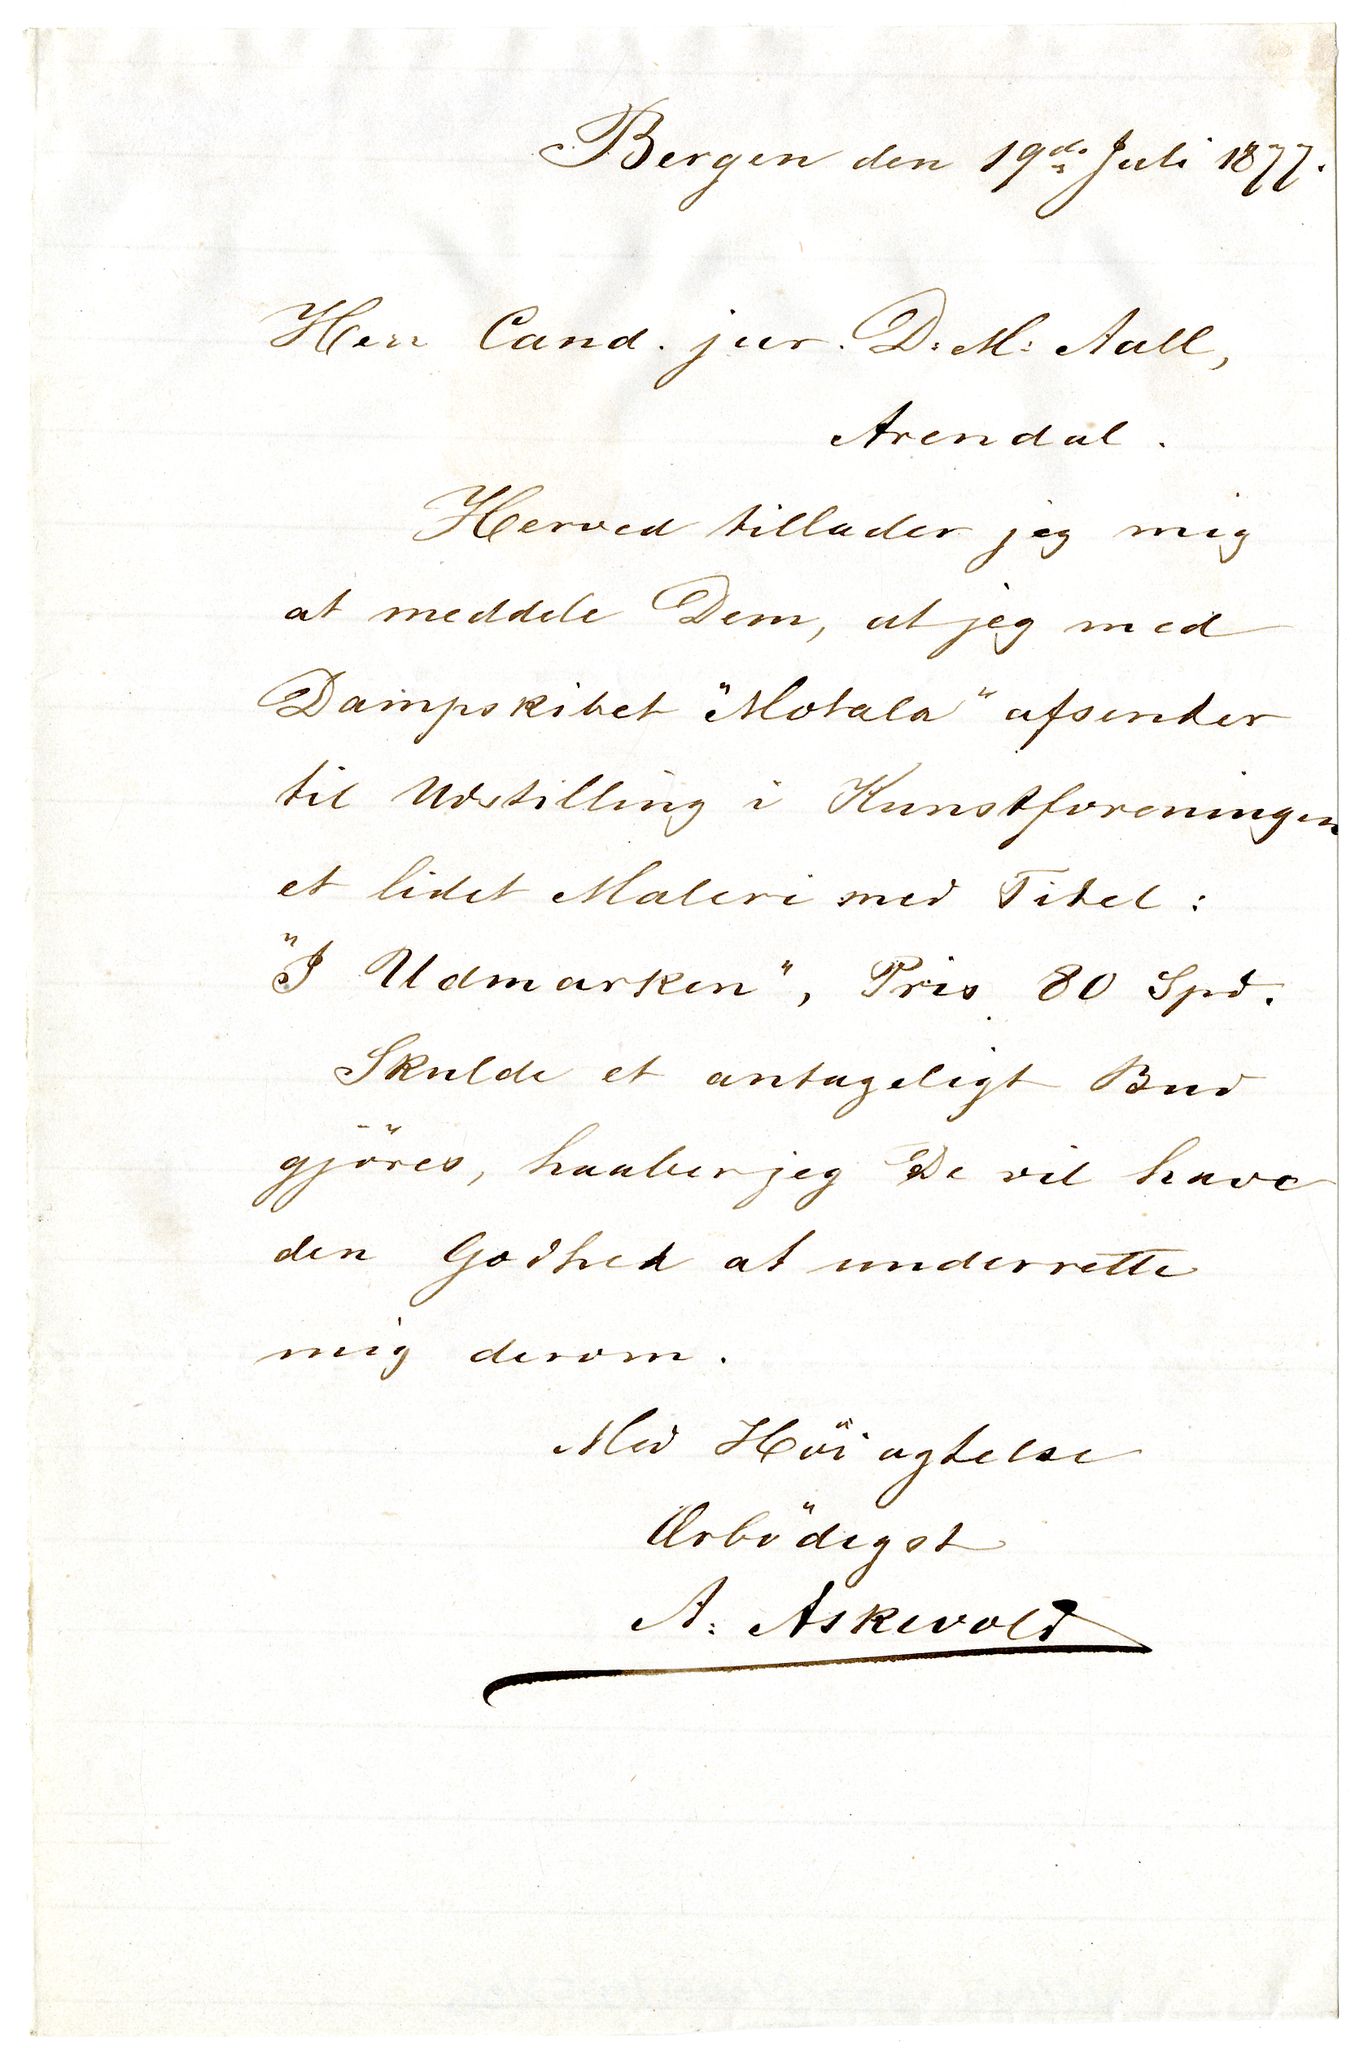 Bergen den 19de Juli 1877.
Herr Cand. jur. D: M: Aall,
Arendal.
Herved tillader jeg mig
at meddele Dem, at jeg med
Dampskibet "Motala" afsender
til Udstilling i Kunstforeningen
et lidet Maleri med Titel:
"I Udmarken", Pris 80 Spd.
Skulde et antageligt Bud
gjöres, haaber jeg De vil have
den Godhed at underrette
mig derom.
Med Höiagtelse
Ærbödigst
A: Askevold